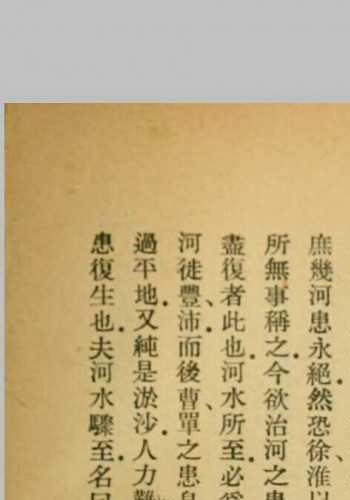 庶幾河患永絕．然恐徐、淮以
所無事稱之．今欲治河之患
盡復者此也．河水所至．必爲
河徙豐、沛．而後曹、單之患
過平地．又純是淤沙．人力難
患復生也．夫河水驟至．名曰